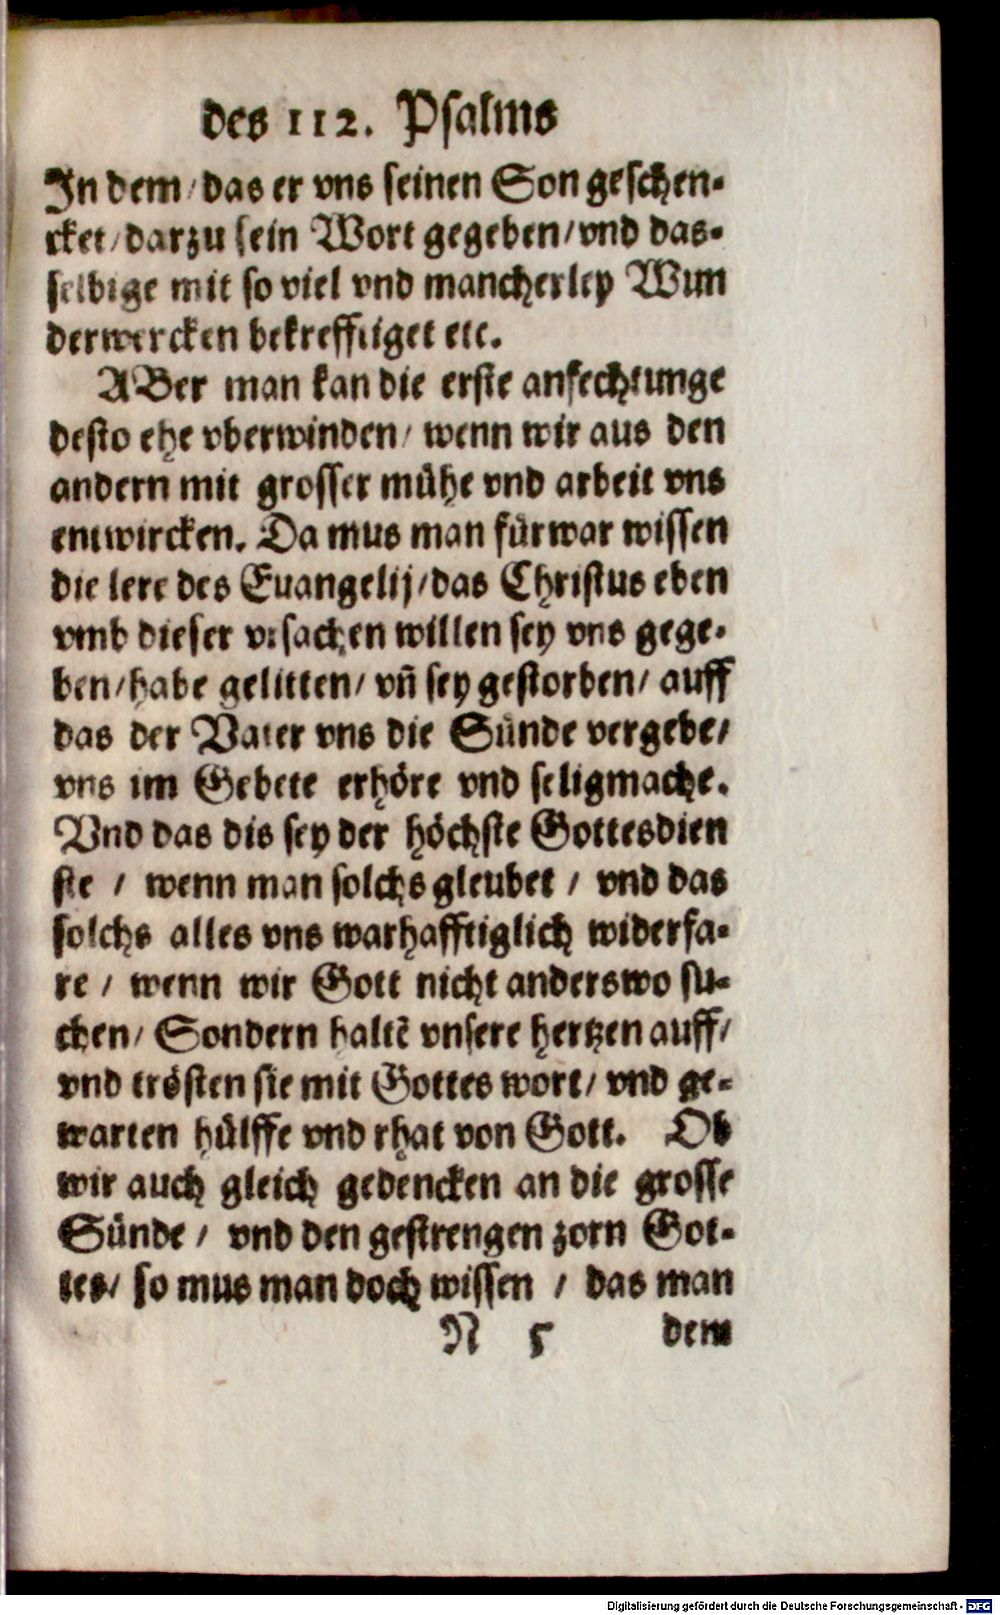 des 112. Psalms
In dem/das er vns seinen Son geschen-
cket/darzu sein Wort gegeben/vnd das-
selbige mit so viel vnd mancherley Wun
derwercken bekrefftiget etc.
ABer man kan die erste anfechtunge
desto ehe vberwinden/ wenn wir aus den
andern mit grosser mühe vnd arbeit vns
entwircken. Da mus man fürwar wissen
die lere des Euangelij/das Christus eben
vmb dieser vrsachen willen sey vns gege-
ben/habe gelitten/ vñ sey gestorben/ auff
das der Vater vns die Sünde vergebe/
vns im Gebete erhöre vnd seligmache.
Vnd das dis sey der höchste Gottesdien
ste / wenn man solchs gleubet / vnd das
solchs alles vns warhafftiglich widerfa-
re / wenn wir Gott nicht anderswo su-
chen/ Sondern haltē vnsere hertzen auff/
vnd trösten sie mit Gottes wort/ vnd ge-
warten hülffe vnd rhat von Gott. Ob
wir auch gleich gedencken an die grosse
Sünde / vnd den gestrengen zorn Got-
tes/ so mus man doch wissen / das man
N 5 dem
Digitalisierung gefördert durch die Deutsche Forschungsgemeinschaft - DFG